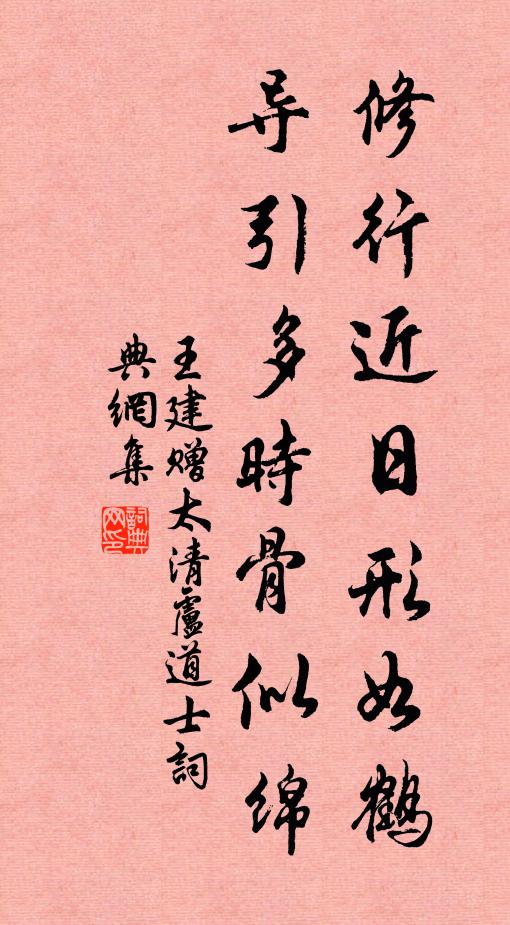 修行近日形如鹤
导引多時骨似绵
王建赠太清盧道士詞
典網集
詞典网印